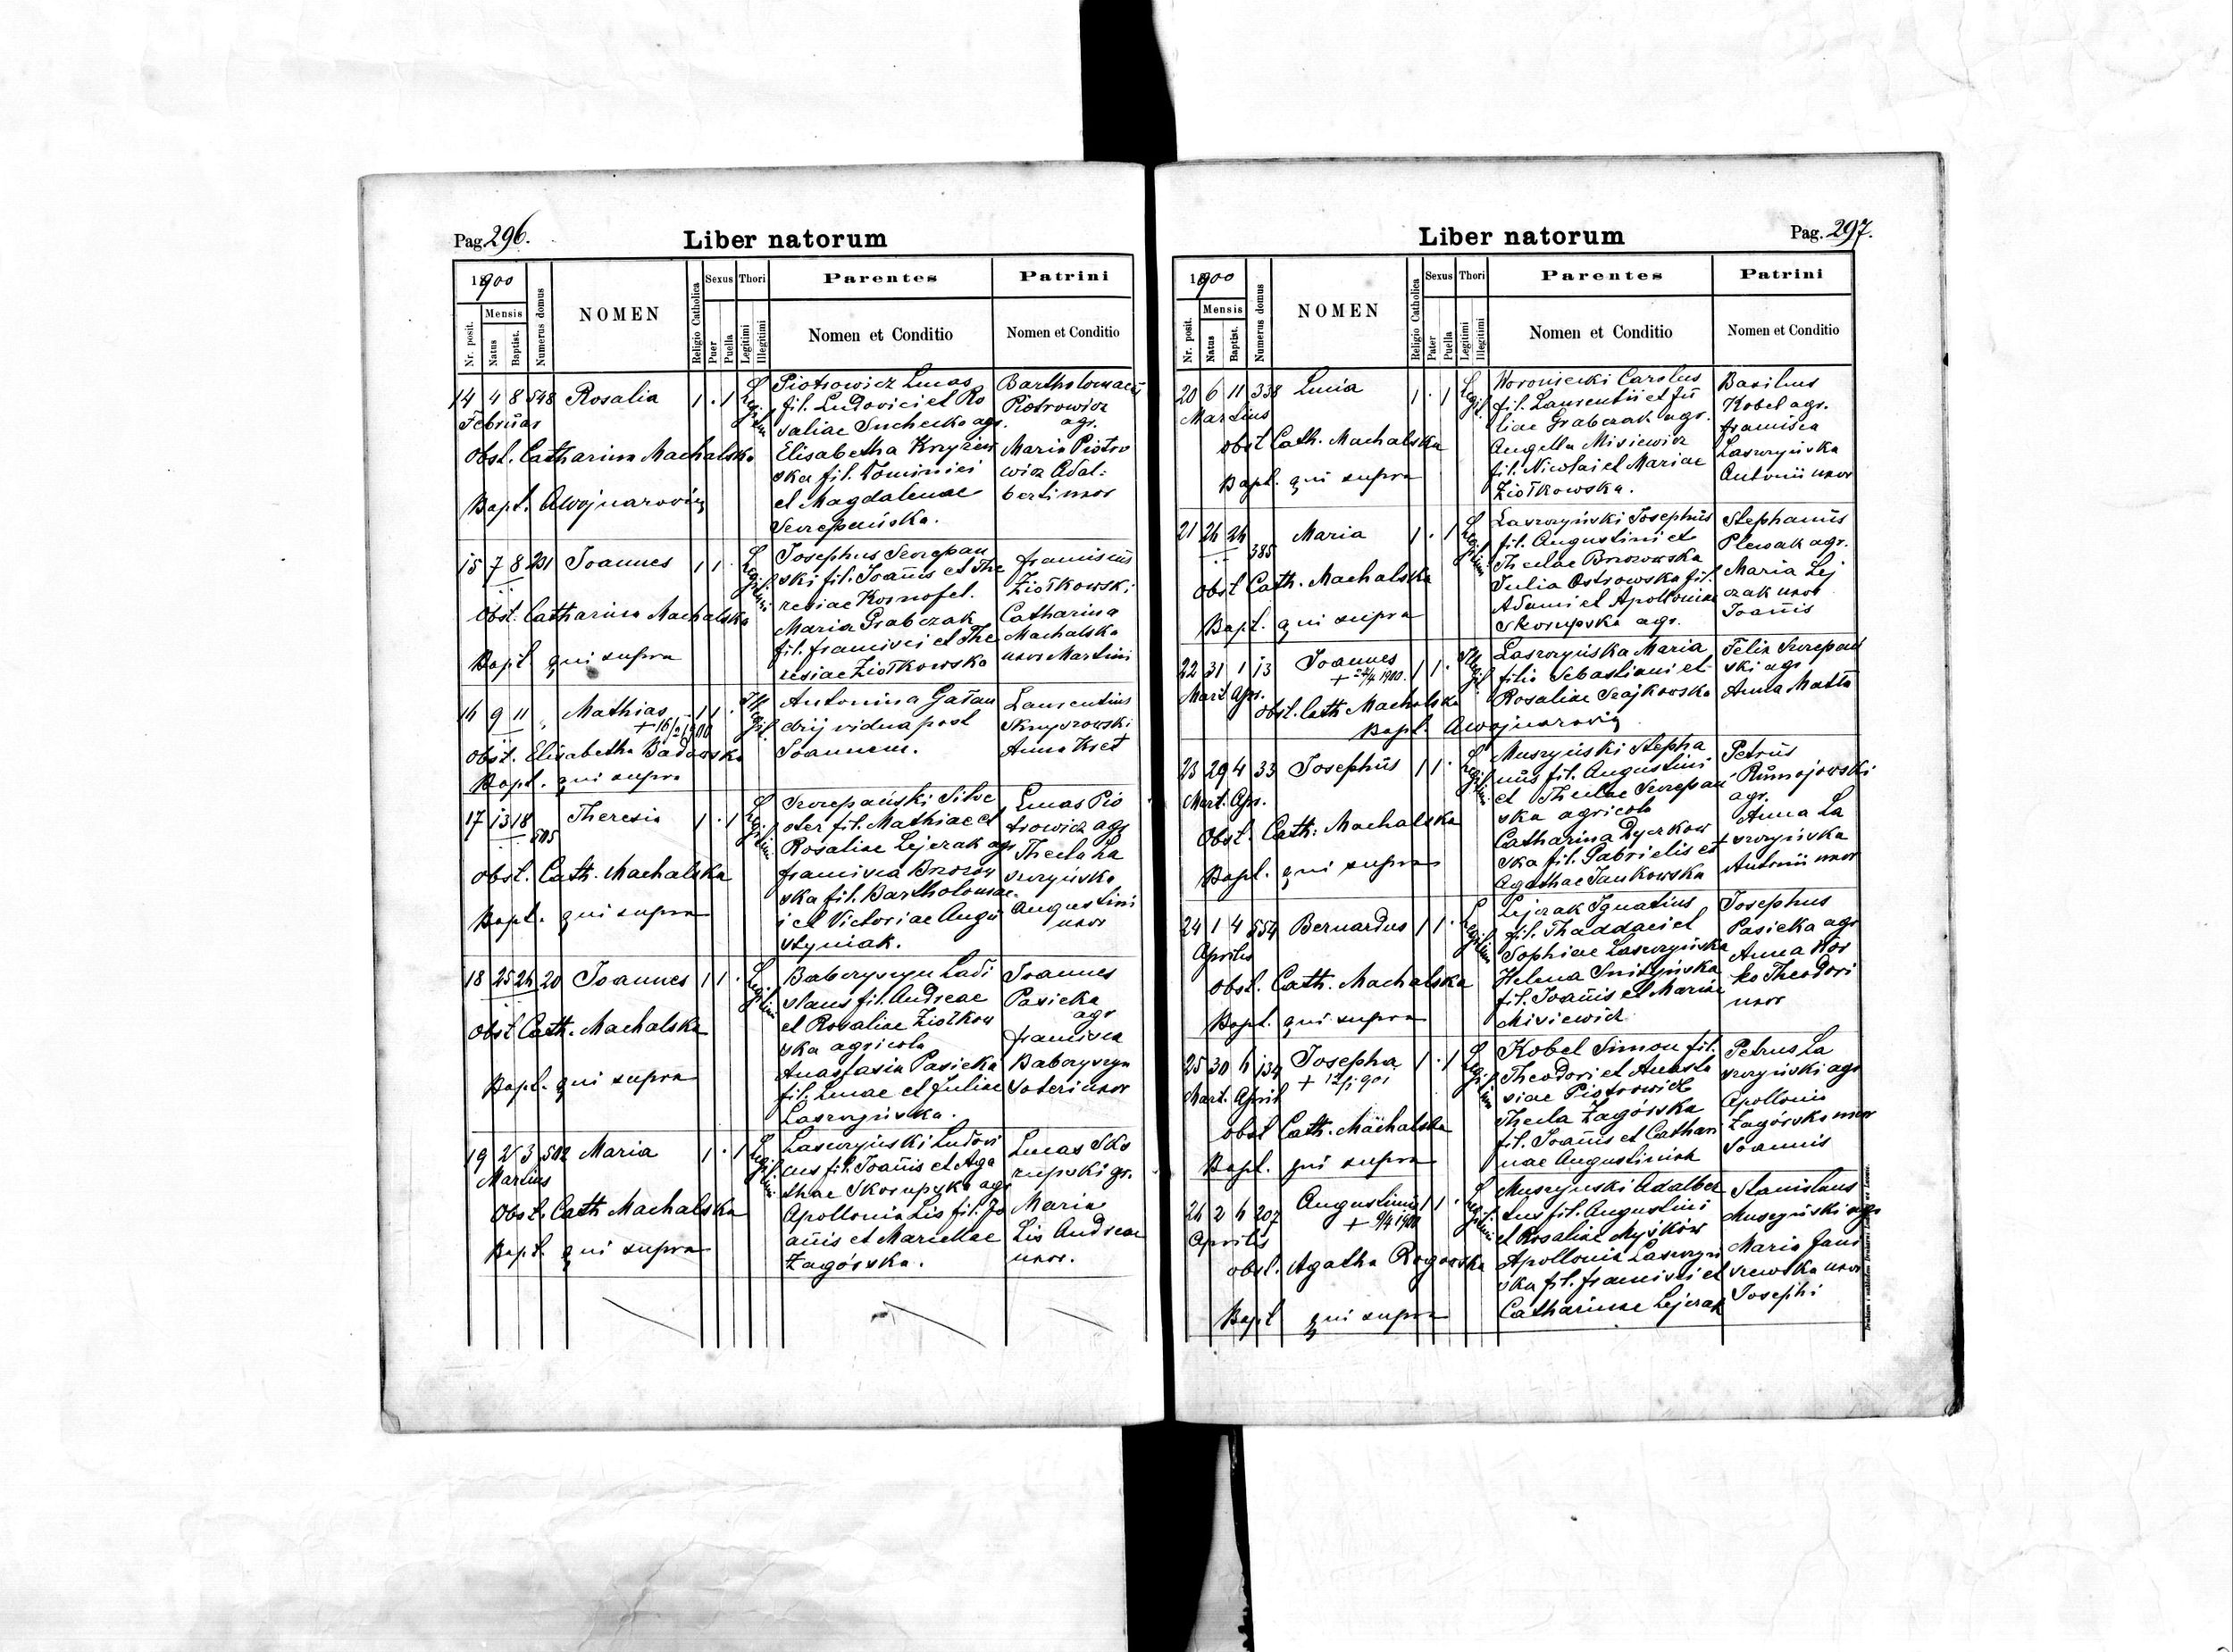 Pag. 296.
Liber natorum
1900
Mensis
Nr. posit.
Natus
Baptist.
Numerus domus
NOMEN
Religio Catholica
Sexus
Puer
Puella
Thori
Legitimi
Illegitimi
Parentes
Nomen et Conditio
Patrini
Nomen et Conditio
14 4 8 548 Rosalia 1 . 1 Legi
Februar
Obst. Catharina Machalska
Bapt. AWojnarowicz
Piotrowicz Lucas
fil. Ludovici et Ro
saliae Suchecka agr.
Elisabetha Kryzew
ska fil. Dominici
et Magdalenae
Szczepańska.
Bartholomaeus
Piotrowicz
agr.
Maria Piotro
wicz Adal-
berti uxor
15 7 8 231 Joannes 1 1 . Legi
Obst. Catharina Machalska
Bapt. qui supra
Josephus Szczepan
ski fil. Joannis et The
resiae Kosnofel.
Maria Grabczak
fil. Francisci et The
resiae Ziółkowska
Franciscus
Ziółkowski
Catharina
Machalska
uxor Martini
16 9 11 Mathias 1 1 . Illegi
+ 16/2 1900
Obst. Elisabetha Badowska
Bapt. qui supra
Antonina Gašan
drij vidua post
Joannem.
Laurentius
Skruszowski
Anna Kret
17 13 18 505 Theresia 1 . 1 Legi
Obst. Cath. Machalska
Bapt. qui supra
Szczepański Silve
ster fil. Mathiae et
Rosaliae Lejczak agr
Francisca Brzozow
ska fil. Bartholomae
i et Victoriae Augu
styniak.
Lucas Pio
trowicz agr
Thecla La
szczyńska
Augustini
uxor
18 25 26 20 Joannes 1 1 . Legi
Obst. Cath. Machalska
Bapt. qui supra
Babczyszyn Ladi
slaus fil. Andreae
et Rosaliae Ziółkow
ska agricola
Anastasia Pasicka
fil. Lucae et Juliae
Laszczyńska.
Joannes
Pasicka
agr
Francisca
Babczyszyn
Soteri uxor
19 2 3 502 Maria 1 . 1 Legi
Martius
Obst. Cath Machalska
Bapt. qui supra
Laszczyński Ludovi
cus fil. Joannis et Aga
thae Skorupska agr
Apollonia Lis fil. Jo
annis et Mariellae
Zagórska.
Lucas Sko
rupski gr.
Maria
Lis Andreae
uxor.
Pag. 297.
Liber natorum
1900
Mensis
Nr. posit.
Natus
Baptist.
Numerus domus
NOMEN
Religio Catholica
Sexus
Puer
Puella
Thori
Legitimi
Illegitimi
Parentes
Nomen et Conditio
Patrini
Nomen et Conditio
20 6 11 338 Lucia 1 . 1 Legi
Martius
Obst Cath. Machalska
Bapt. qui supra
Woroniecki Carolus
fil. Laurentii et Ju
liae Grabczak agr.
Angella Misiewicz
fil. Nicolai et Mariae
Ziółkowska.
Basilius
Kobel agr.
Francisca
Laszczyńska
Antonii uxor
21 26 26 385 Maria 1 . 1 Legi
Obst Cath. Machalska
Bapt. qui supra
Laszczyński Josephus
fil. Augustini et
Theclae Brzozowska
Julia Ostrowska fil.
Adami et Apolloniae
Skorupska agr.
Stephanus
Plewak agr.
Maria Lej
czak uxor
Joannis
22 31 1 13 Joannes 1 1 . Illegi
+ 24/4 1900.
Mart. Apr.
Obst. Cath Machalska
Bapt. AWojnarowicz
Laszczyńska Maria
filia Sebastiani et
Rosaliae Szajkowska
Felix Szczepań
ski agr
Anna Matla
23 29 4 33 Josephus 1 1 . Legi
Mart. Apr.
Obst. Cath. Machalska
Bapt. qui supra
Muszyński Stepha
nus fil. Augustini
et Theclae Szczepań
ska agricola
Catharina Dyczkow
ska fil. Gabrielis et
Agathae Jankowska
Petrus
Rumojowski
agr.
Anna La
szczyńska
Antonii uxor
24 1 4 554 Bernardus 1 1 . Legi
Aprilis
Obst. Cath. Machalska
Bapt. qui supra
Lejczak Ignatius
fil. Thaddaei et
Sophiae Laszczyńska
Helena Snitzyńska
fil. Joannis et Mariae
Misiewicz
Josephus
Pasicka agr
Anna Wos
ko Theodori
uxor
25 30 6 134 Josepha 1 . 1 Legi
+ 12/1 901
Mart. April
Obst Cath. Machalska
Bapt. qui supra
Kobel Simon fil.
Theodori et Anasta
siae Piotrowicz
Thecla Zagórska
fil. Joannis et Cathari
nae Augustiniak
Petrus La
szczyński agr
Apollonia
Zagórska uxor
Joannis
26 2 6 207 Augustinus 1 1 . Legi
+ 9/4 1900
Aprilis
Obst. Agatha Rogowska
Bapt qui supra
Muszyński Adalber
tus fil. Augustini
et Rosaliae Myśków
Apollonia Laszczyń
ska fil. Francisci et
Catharinae Lejczak
Stanislaus
Muszyński agr
Maria Jani
szewska uxor
Josephi